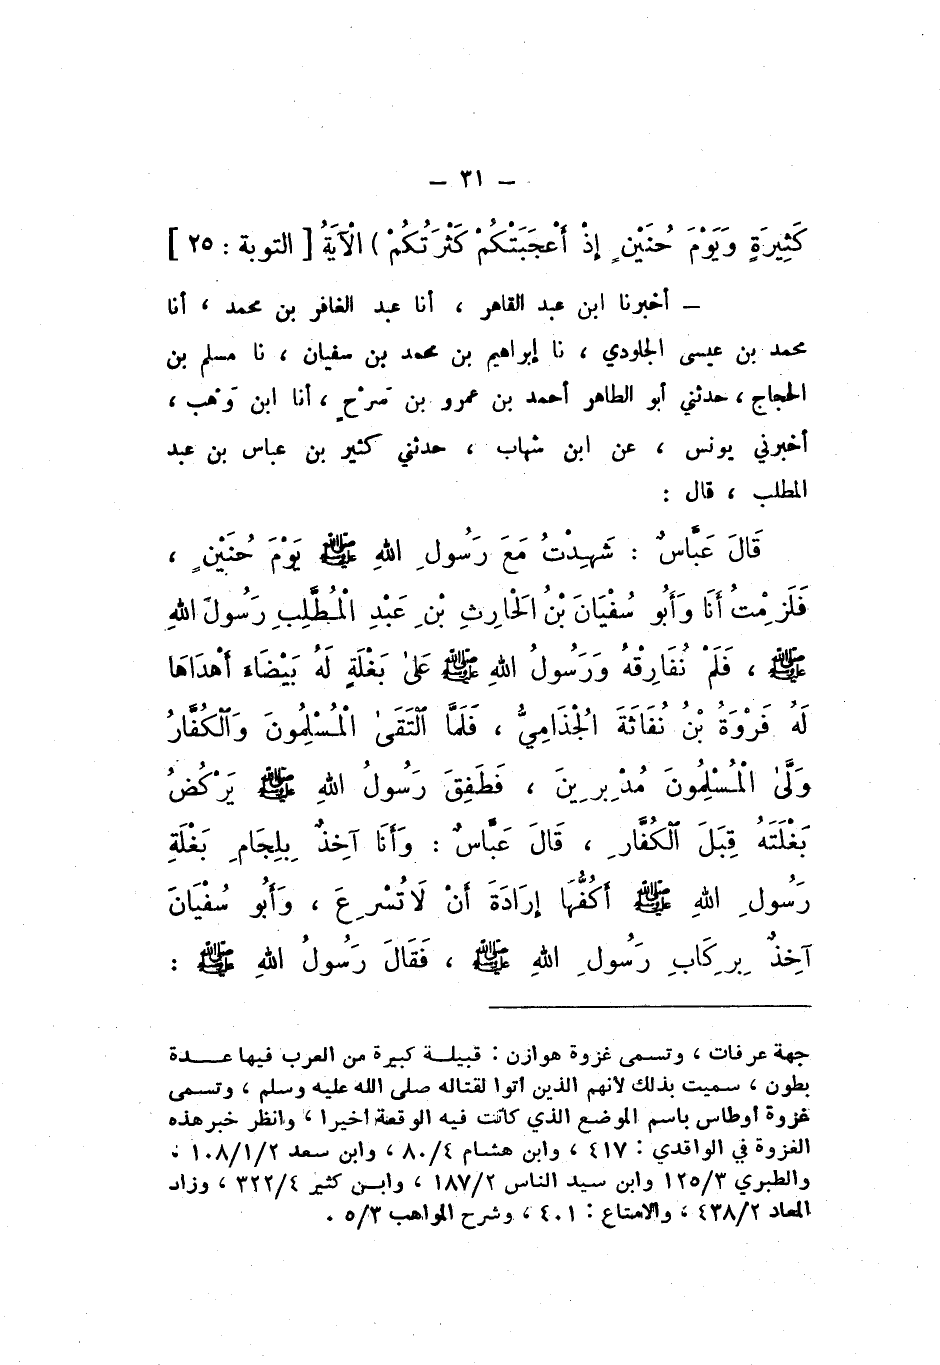 – ٣١ –
كَثِيرَةٍ وَيَوْمَ حُنَيْنٍ إِذْ أَعْجَبَتْكُمْ كَثْرَتُكُمْ ) الْآيَةُ [ التوبة : ٢٥ ]
– أخبرنا ابن عبد القاهر ، أنا عبد الغافر بن محمد ، أنا
محمد بن عيسى الجلودي ، نا إبراهيم بن محمد بن سفيان ، نا مسلم بن
الحجاج ، حدثني أبو الطاهر أحمد بن عمرو بن سَرْحٍ ، أنا ابن وَهب ،
أخبرني يونس ، عن ابن شهاب ، حدثني كثير بن عباس بن عبد
المطلب ، قال :
قَالَ عَبَّاسٌ : شَهِدْتُ مَعَ رَسُولِ اللهِ ﷺ يَوْمَ حُنَيْنٍ ،
فَلَزِمْتُ أَنَا وَأَبُو سُفْيَانَ بْنُ الْحَارِثِ بْنِ عَبْدِ الْمُطَّلِبِ رَسُولَ اللهِ
ﷺ ، فَلَمْ نُفَارِقْهُ وَرَسُولُ اللهِ ﷺ عَلَىٰ بَغْلَةٍ لَهُ بَيْضَاءَ أَهْدَاهَا
لَهُ فَرْوَةُ بْنُ نُفَاثَةَ الْجُذَامِيُّ ، فَلَمَّا ٱلْتَقَىٰ الْمُسْلِمُونَ وَٱلْكُفَّارُ
وَلَّىٰ الْمُسْلِمُونَ مُدْبِرِينَ ، فَطَفِقَ رَسُولُ اللهِ ﷺ يَرْكُضُ
بَغْلَتَهُ قِبَلَ ٱلْكُفَّارِ ، قَالَ عَبَّاسٌ : وَأَنَا آخِذٌ بِلِجَامِ بَغْلَةِ
رَسُولِ اللهِ ﷺ أَكُفُّهَا إِرَادَةَ أَنْ لَا تُسْرِعَ ، وَأَبُو سُفْيَانَ
آخِذٌ بِرِكَابِ رَسُولِ اللهِ ﷺ ، فَقَالَ رَسُولُ اللهِ ﷺ :
جهة عرفات ، وتسمى غزوة هوازن : قبيلة كبيرة من العرب فيها عدة
بطون ، سميت بذلك لأنهم الذين أتوا لقتاله صلى الله عليه وسلم ، وتسمى
غزوة أوطاس باسم الموضع الذي كانت فيه الوقعة أخيرا ، وانظر خبر هذه
الغزوة في الواقدي : ٤١٧ ، وابن هشام ٨٠/٤ ، وابن سعد ١٠٨/١/٢ .
والطبري ١٢٥/٣ وابن سيد الناس ١٨٧/٢ ، وابن كثير ٣٢٢/٤ ، وزاد
المعاد ٤٣٨/٢ ، والامتاع : ٤٠١ ، وشرح المواهب ٥/٣ .